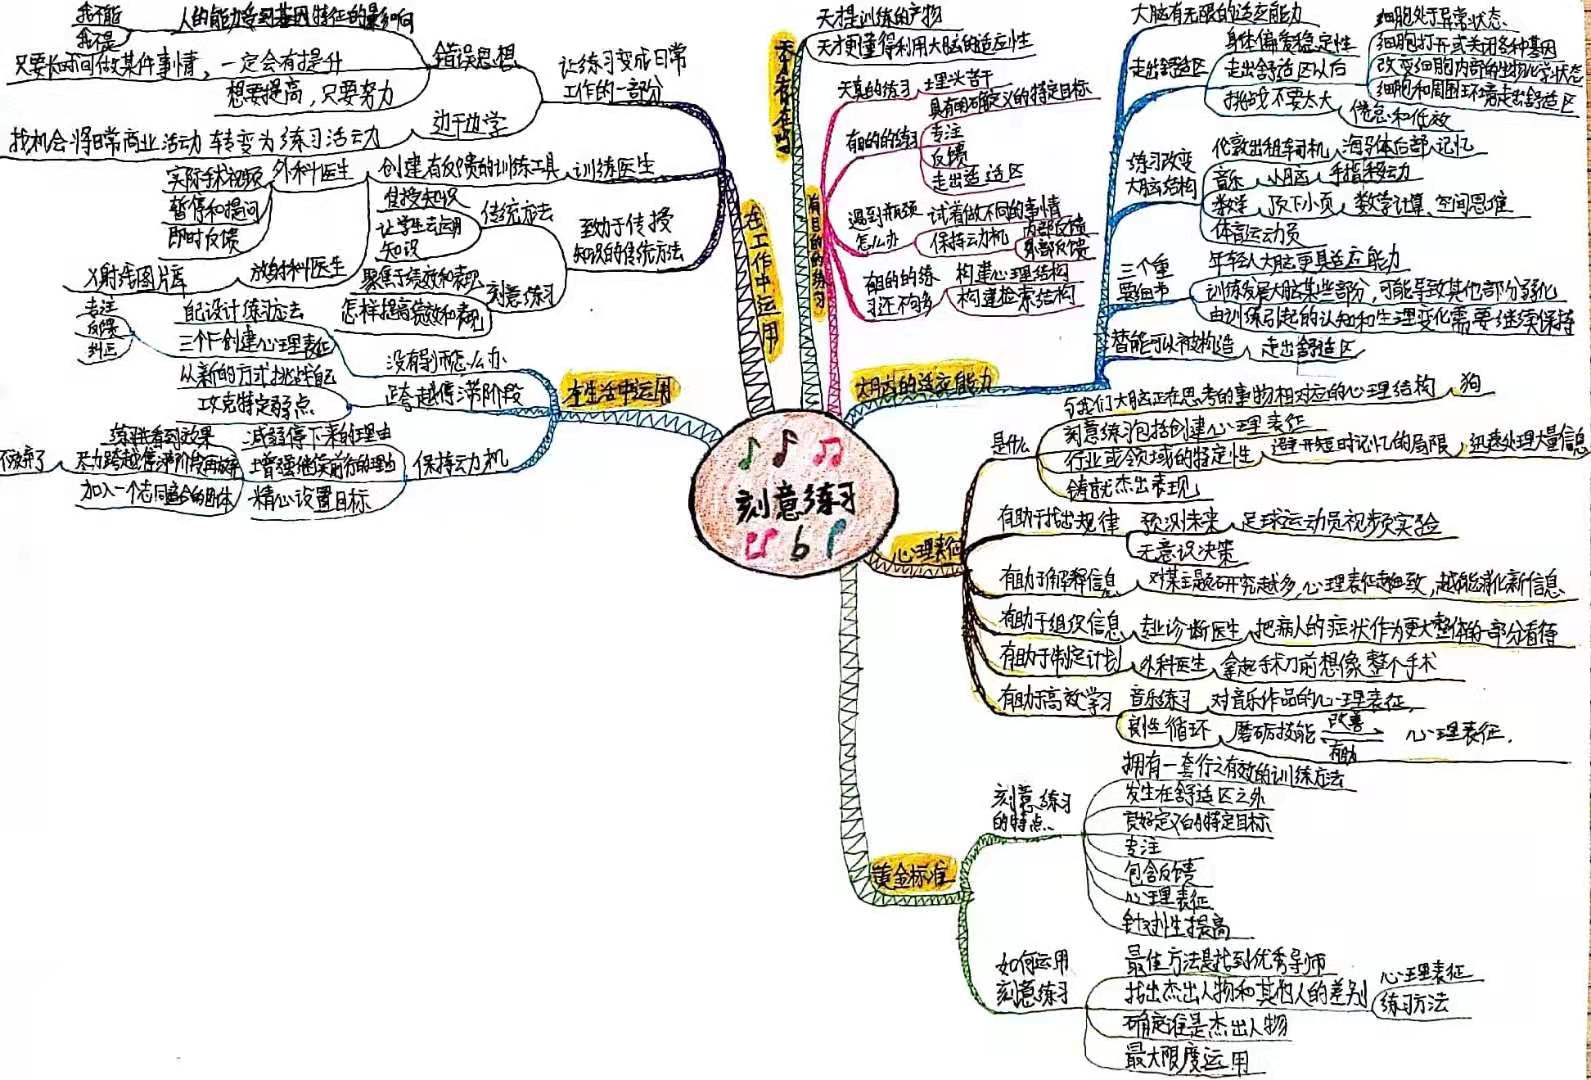 刻意练习
天才存在吗
天才是训练的产物
天才更懂得利用大脑的适应性
有目的的练习
天真的练习
埋头苦干
有目的的练习
具有明确定义的特定目标
专注
反馈
走出舒适区
遇到瓶颈
怎么办
试着做不同的事情
保持动机
内部反馈
外部反馈
有目的的练
习还不够
构建心理结构
构建检索结构
大脑的适应能力
大脑有无限的适应能力
走出舒适区
身体偏爱稳定性
走出舒适区以后
细胞处于异常状态
细胞打开或关闭各种基因
改变细胞内部的生物化学状态
细胞和周围环境走出舒适区
挑战不要太大
倦怠和低效
练习改变
大脑结构
伦敦出租车司机
海马体后部
记忆
音乐
小脑
手指移动
数学
顶下小页
数学计算、空间思维
体育运动员
三个重
要细节
年轻人大脑更具适应能力
训练发展大脑某些部分,可能导致其他部分弱化
由训练引起的认知和生理变化需要继续保持
潜能可以被构造
走出舒适区
心理表征
是什么
与我们大脑正在思考的事物相对应的心理结构
狗
刻意练习包括创建心理表征
行业或领域的特定性
避开短时记忆的局限
迅速处理大量信息
铸就杰出表现
有助于找出规律
预测未来
足球运动员视频实验
无意识决策
有助于解释信息
对某主题研究越多,心理表征越细致,越能消化新信息
有助于组织信息
专业诊断医生
把病人的症状作为更大整体的一部分看待
有助于制定计划
外科医生
拿起手术刀前想像整个手术
有助于高效学习
音乐练习
对音乐作品的心理表征
良性循环
磨砺技能
改善
有助
心理表征
黄金标准
刻意练习
的特点
拥有一套行之有效的训练方法
发生在舒适区之外
良好定义的特定目标
专注
包含反馈
心理表征
针对性提高
如何运用
刻意练习
最佳方法是找到优秀导师
找出杰出人物和其他人的差别
心理表征
练习方法
确定谁是杰出人物
最大限度运用
在工作中运用
让练习变成日常
工作的一部分
错误思想
我不能
我不是
人的能力受到基因特征的影响
只要长时间做某件事情,一定会有提升
想要提高,只要努力
边干边学
找机会将日常商业活动 转变为练习活动
训练医生
创建有反馈的训练工具
外科医生
实际手术视频
暂停和提问
即时反馈
放射科医生
X射线图片库
致力于传授
知识的传统方法
传统方法
传授知识
让学生去运用
知识
刻意练习
聚焦于绩效和表现
怎样提高绩效和表现
在生活中运用
没有导师怎么办
自己设计练习方法
三个F创建心理表征
专注
反馈
纠正
跨越停滞阶段
从新的方式挑战自己
攻克特定弱点
保持动机
减弱停下来的理由
增强继续前行的理由
练习能看到效果
努力跨越停滞阶段再放弃
加入一个志同道合的团体
精心设置目标